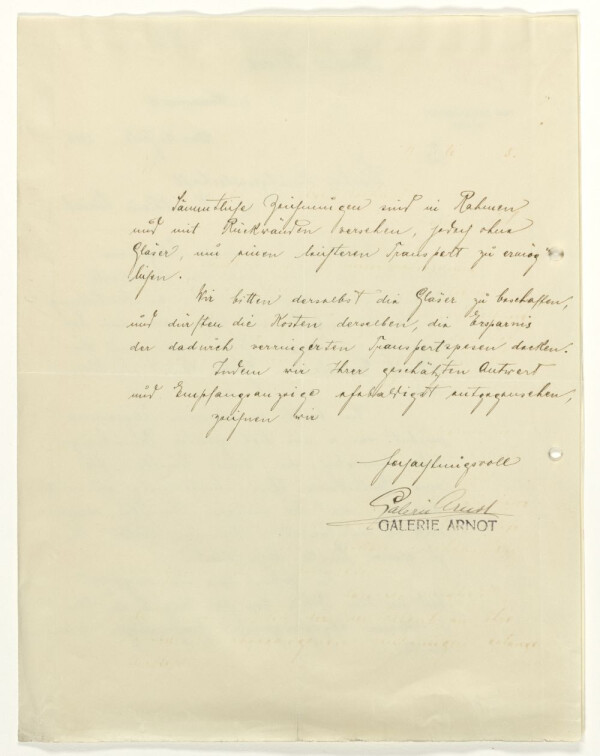 Sämmtliche Zeichnungen sind in Rahmen
und mit Rückwänden versehen, jedoch ohne
Gläser, um einen leichteren Transport zu ermög-
lichen.
Wir bitten derselbst die Gläser zu beschaffen,
und dürften die Kosten derselben, die Ersparnis
der dadurch verringerten Transportspesen decken.
Indem wir Ihrer geschätzten Antwort
und Empfangsanzeige ehebaldigst entgegensehen,
zeichnen wir
hochachtungsvoll
Galerie Arnot
GALERIE ARNOT